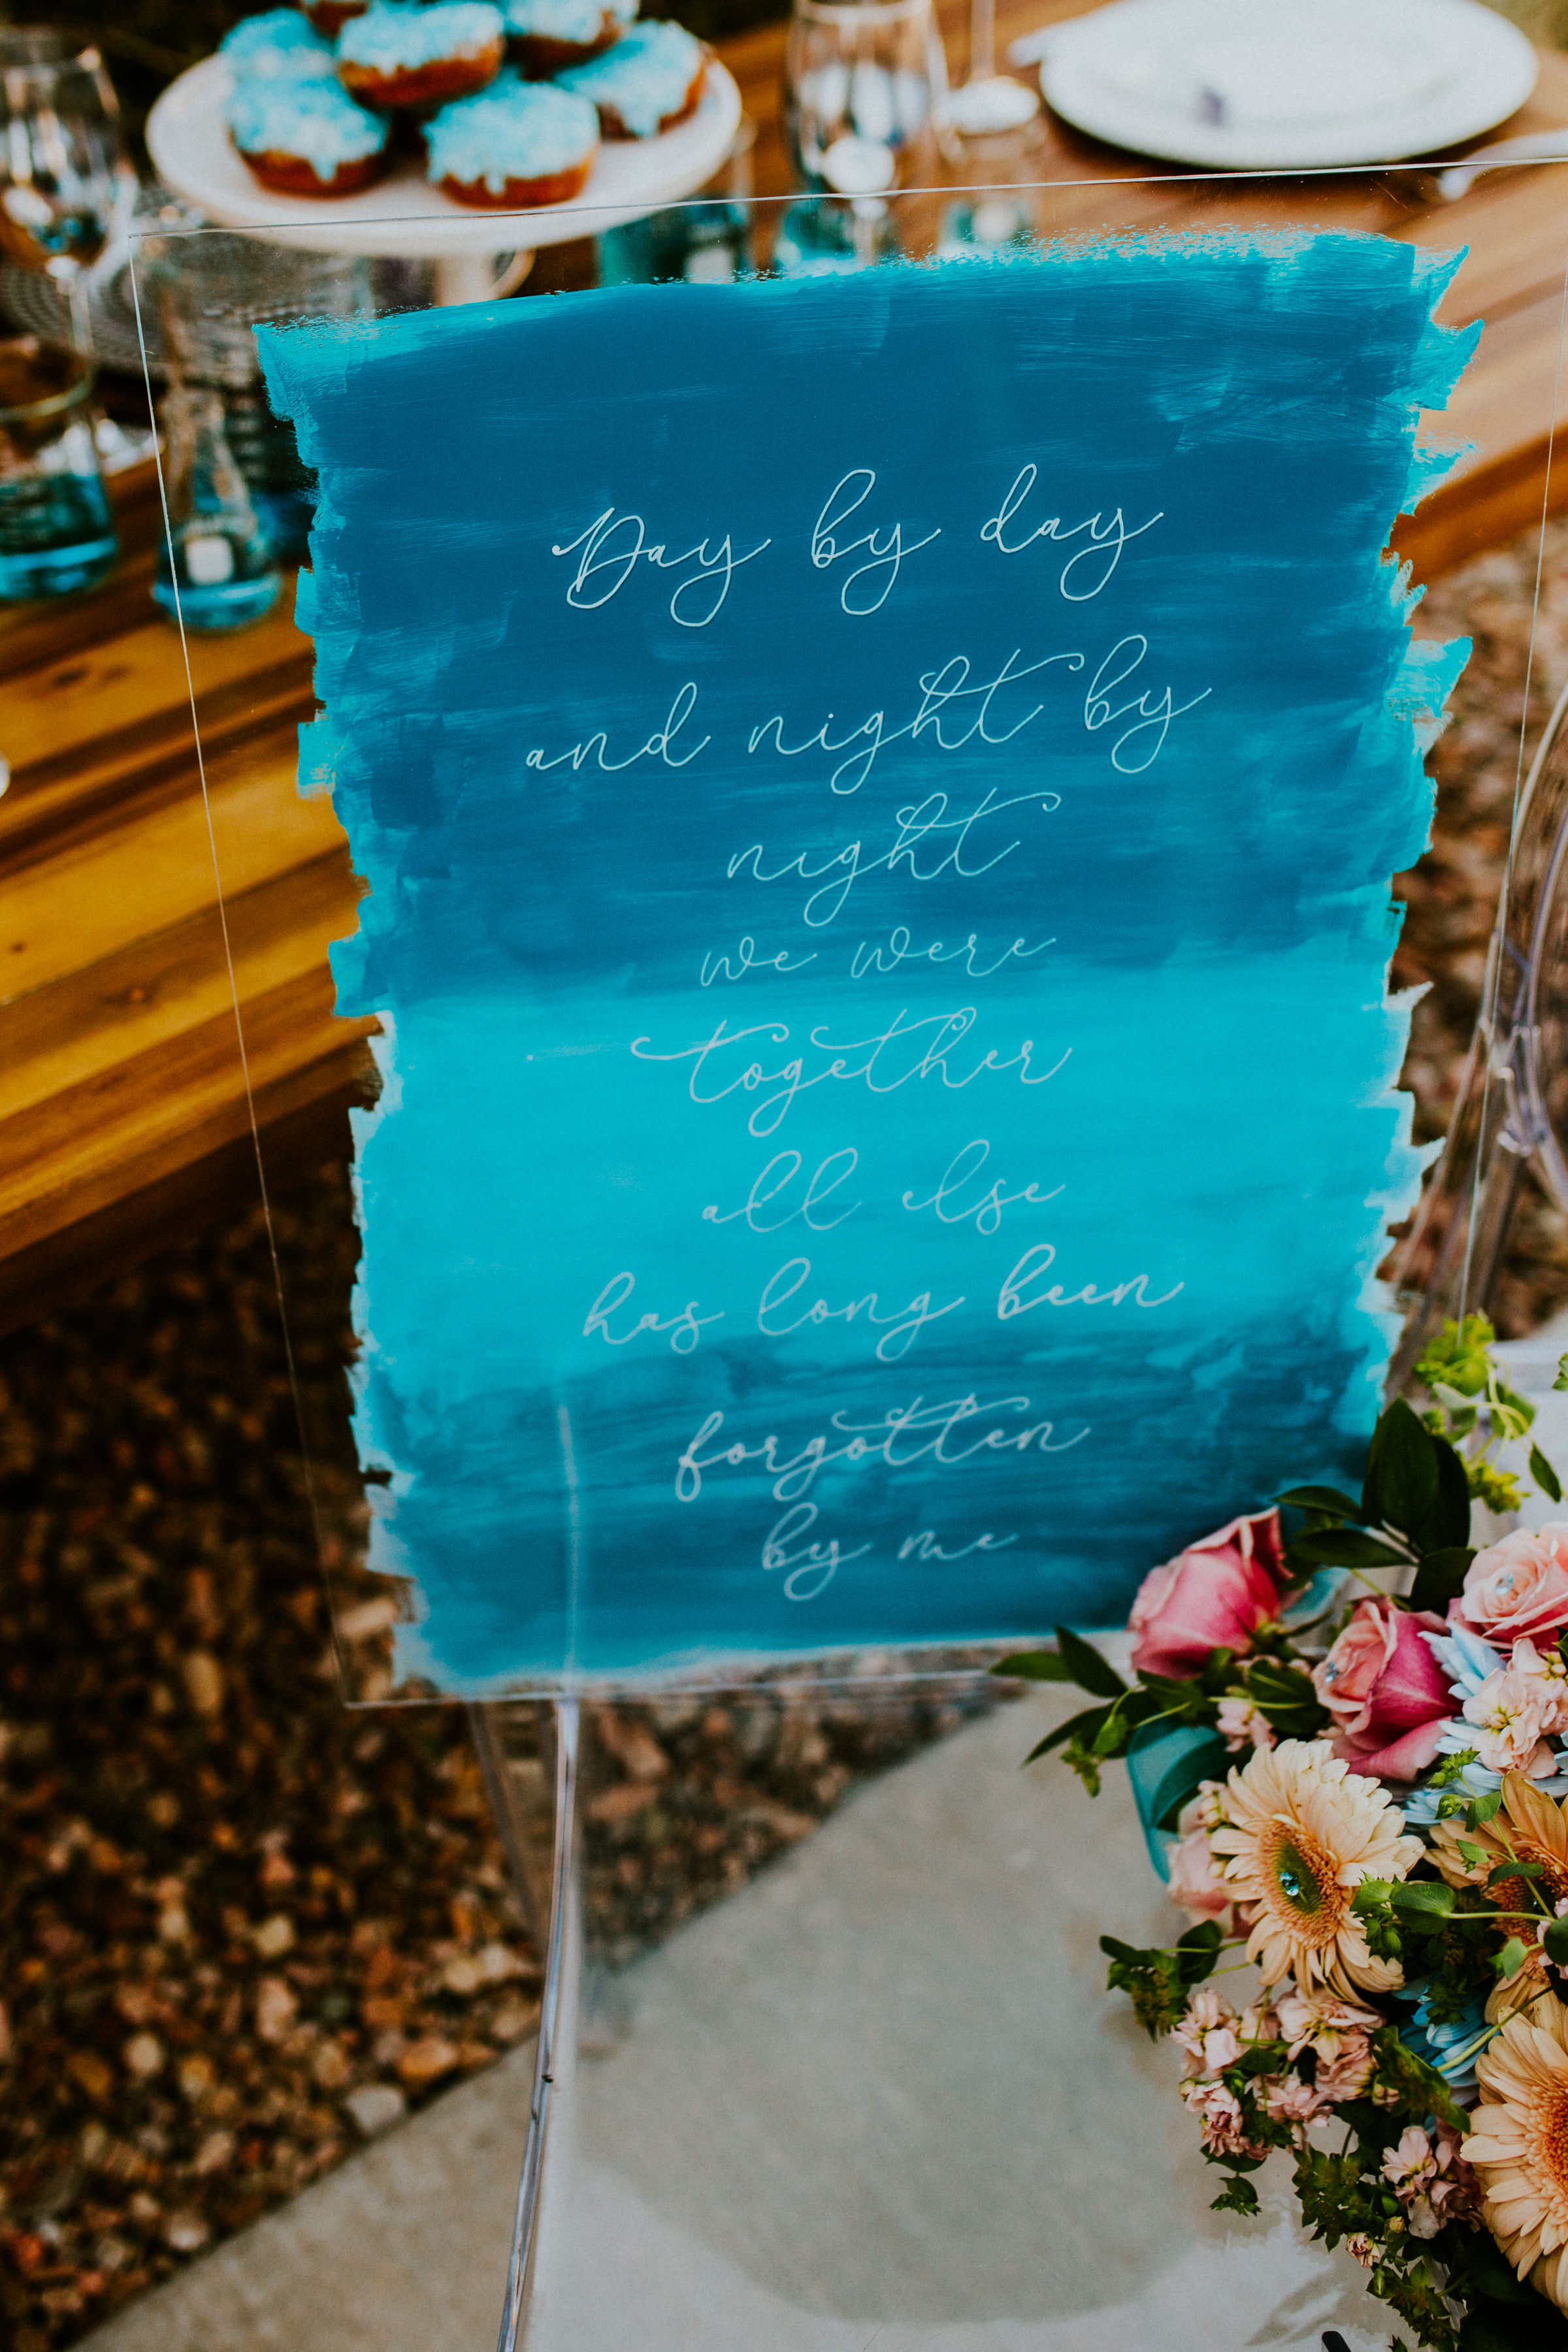 Day by day
and night by
night
we were
together
all else
has long been
forgotten
by me